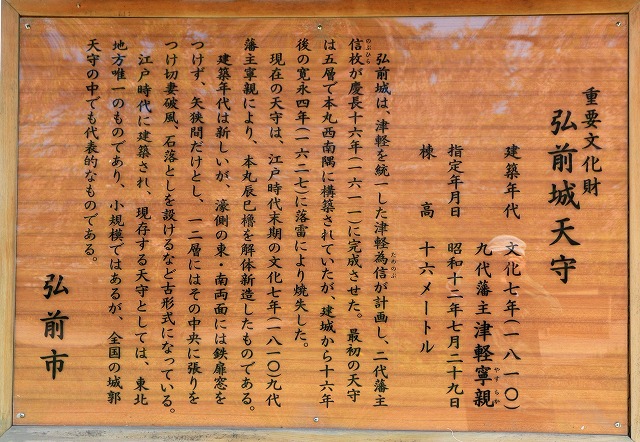 重要文化財
弘前城天守
建築年代　文化七年(一八一〇)
九代藩主津軽寧親
やすちか
指定年月日　昭和十二年七月二十九日
棟高　十六メートル
弘前城は、津軽を統一した津軽為信が計画し、二代藩主
ためのぶ
信枚が慶長十六年(一六一一)に完成させた。最初の天守
のぶひら
は五層で本丸西南隅に構築されていたが、建城から十六年
後の寛永四年(一六二七)に落雷により焼失した。
現在の天守は、江戸時代末期の文化七年(一八一〇)九代
藩主寧親により、本丸辰巳櫓を解体新造したものである。
建築年代は新しいが、濠側の東・南両面には鉄扉窓を
つけず、矢狭間だけとし、一二層にはその中央に張りを
つけ切妻破風、石落としを設けるなど古形式になっている。
江戸時代に建築され、現存する天守としては、東北
地方唯一のものであり、小規模ではあるが、全国の城郭
天守の中でも代表的なものである。
弘前市